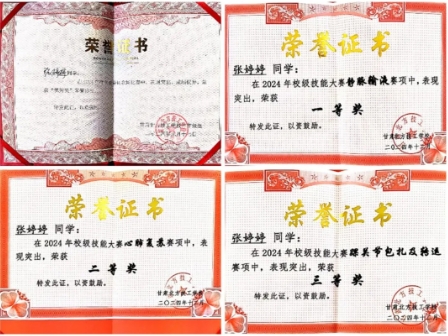 荣誉证书
张婷婷
荣誉证书
张婷婷 同学：
在 2024 年校级技能大赛静脉输液赛项中，表现
突出，荣获
一 等 奖
特发此证，以资鼓励。
甘肃北方技工学校
二〇二四年十二月
荣誉证书
张婷婷 同学：
在 2024 年校级技能大赛心肺复苏赛项中，表
现突出，荣获
二 等 奖
特发此证，以资鼓励。
甘肃北方技工学校
二〇二四年十二月
荣誉证书
张婷婷 同学：
在 2024 年校级技能大赛踝关节包扎及转运
赛项中，表现突出，荣获
三 等 奖
特发此证，以资鼓励。
甘肃北方技工学校
二〇二四年十二月